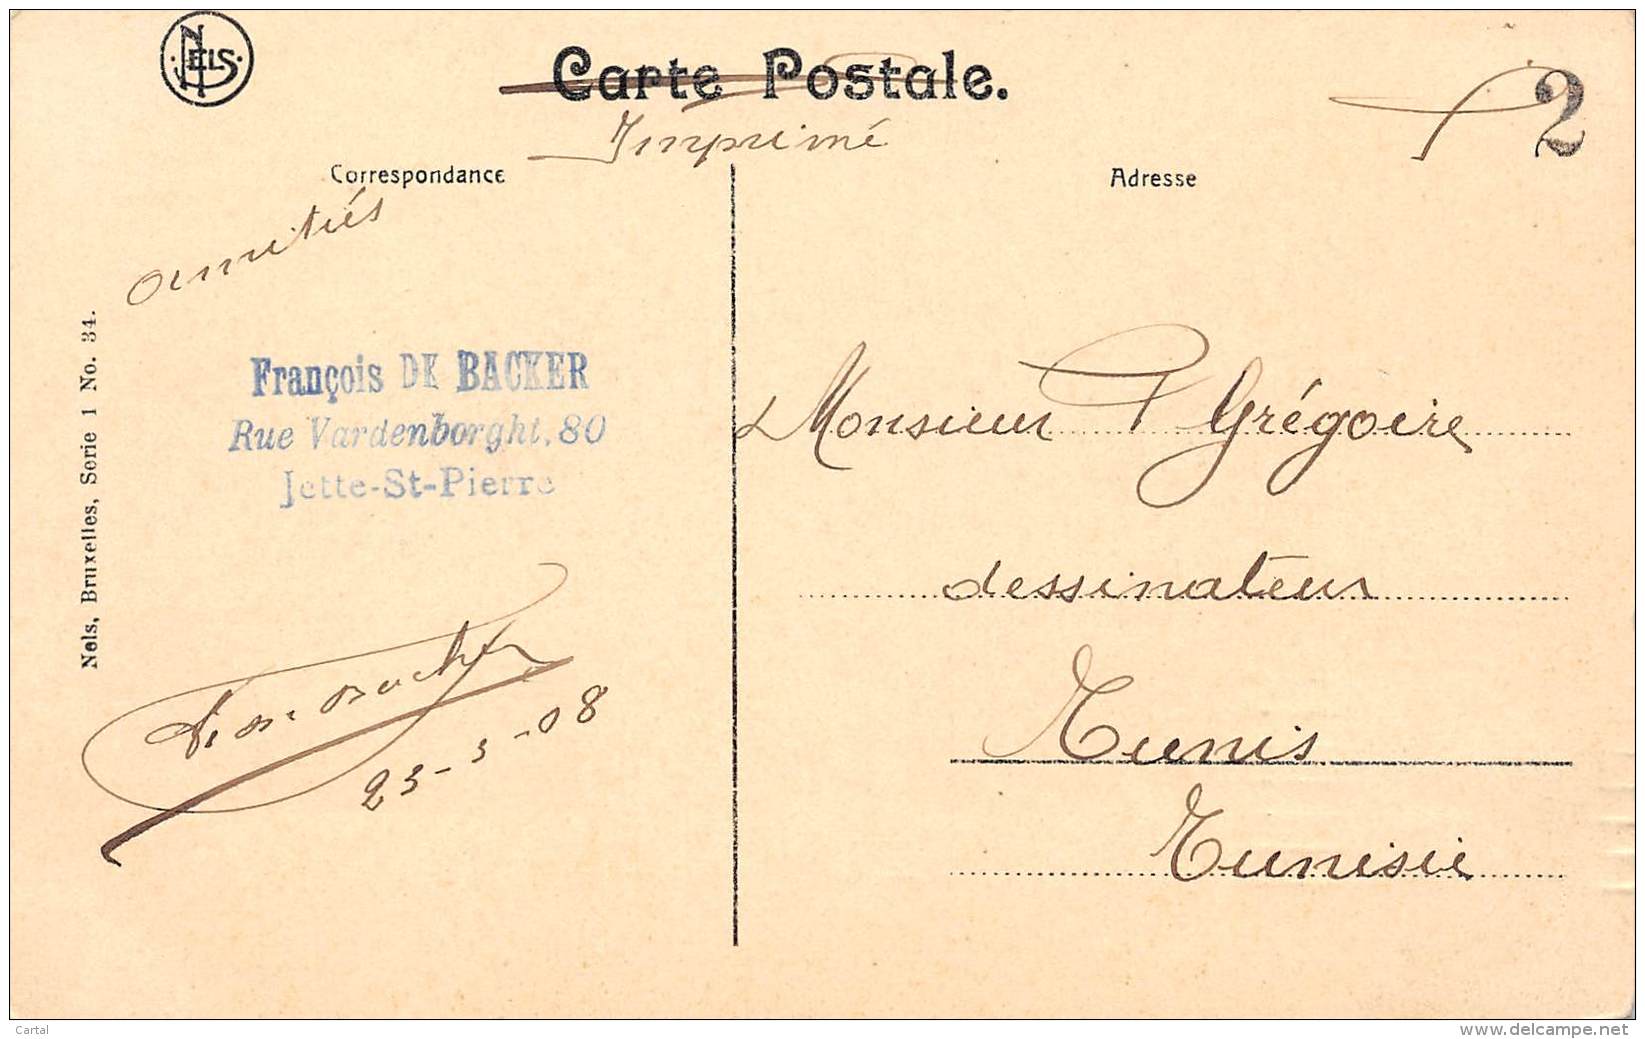 NELS
Carte Postale.
Imprimé
2
T
Correspondance
Adresse
amitiés
François DE BACKER
Rue Vardenborght, 80
Jette-St-Pierre
Nels, Bruxelles, Serie 1 No. 34.
F. De Backer
23-3-08
Monsieur P Grégoire
dessinateur
Tunis
Tunisie
Cartal
www.delcampe.net